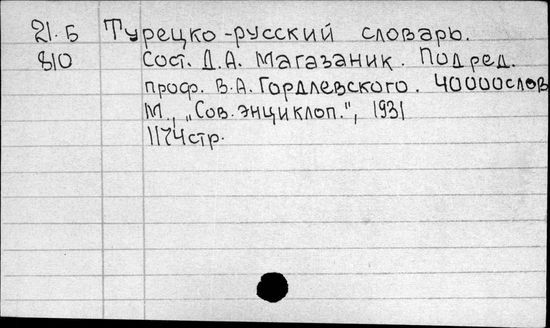 21.Б Турецко-русский словарь.
810 Сост. Д.А. Магазаник. Под ред.
проф. В.А. Гордлевского. 40000слов
М., „Сов. энциклоп.", 1931
1174стр.